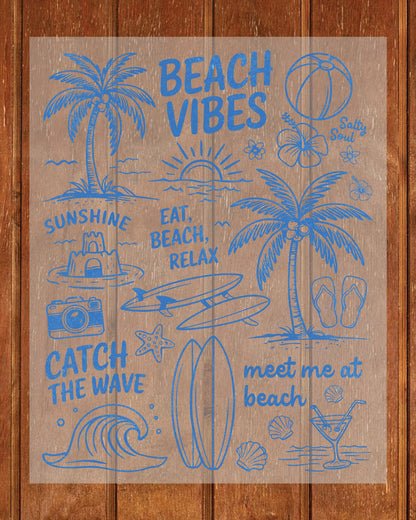 BEACH
VIBES
Salty
Soul
SUNSHINE
EAT,
BEACH,
RELAX
CATCH
THE WAVE
meet me at
beach